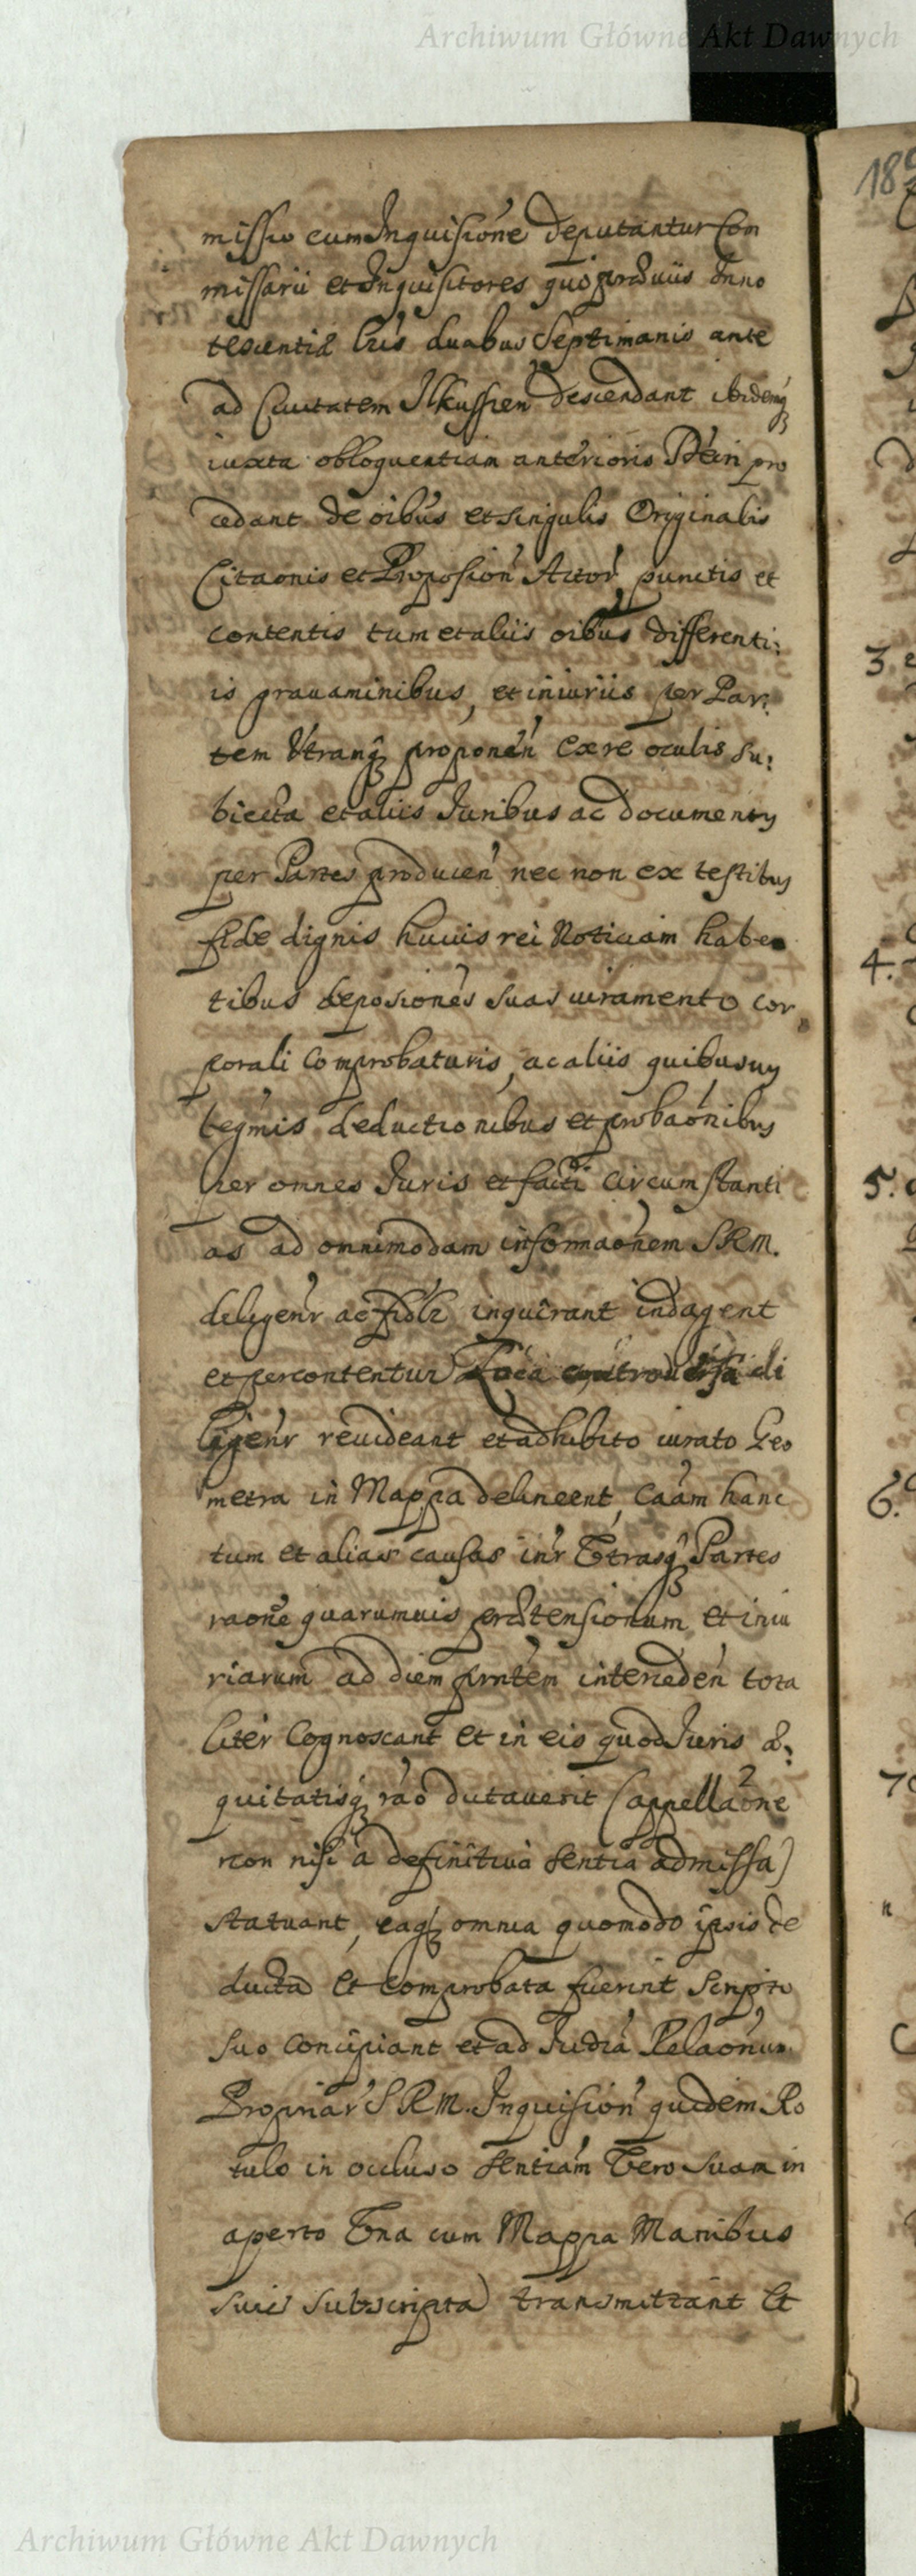 Archiwum Główne Akt Dawnych
missio cum Inquisióne deputantur Com
missarii et Inquisitores qui prævuiis Inno
tescentiæ lris duabus Septimanis ante
ad Ciuitatem Ilkussien descendant ibidemq
iuxta obloquentiam anterioris Dtein pro
cedant de oibus et singulis Originalis
Citaonis et Proposion Actor punctis et
contentis tum et aliis oibus differenti:
is grauaminibus, et iniuriis per Par:
tem Vtranq proponen ex re oculis su:
biecta et aliis Iuribus ac documentis
per Partes producen nec non ex testibus
fide dignis huius rei Notitiam haben
tibus deposiones suas iuramento cor
porali Comprobaturis, ac aliis quibusuis
legmis deductionibus et probaonibus
per omnes Iuris et facti Circumstanti
as ad omnimodam informaonem S R M.
deligenr ac fidlr inquirant indagent
et percontentur Loca controuersa di
ligenr reuideant et adhibito iurato Geo
metra in Mappa delineent, Caam hanc
tum et alias causas inr Vtrasq Partes
raone quarumuis prætensionum et iniu
riarum ad diem prntem interceden tota
liter Cognoscant et in eis quod Iuris æ:
quitatisq rao dictauerit (appellaone
non nisi a definitiua sentia admissa)
statuant, eaq omnia quomodo ipsis de
ducta et comprobata fuerint Scripto
suo concipiant et ad Iudia Relaonum
Propriar S R M. Inquision quidem Ro
tulo in occluso sentiam Vero suam in
aperto Vna cum Mappa Manibus
suis subscripta transmittant Et
18
3.
4.
5.
6.
7
Archiwum Główne Akt Dawnych